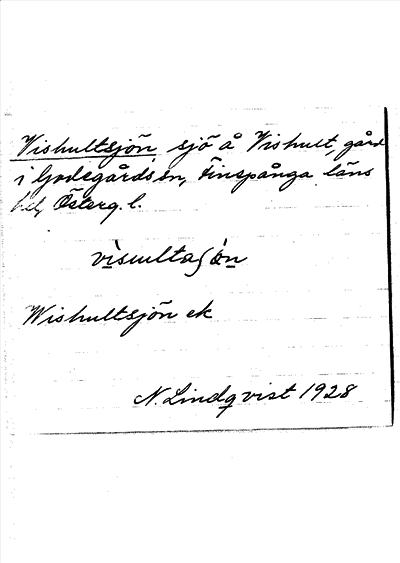 Vishultsjön, sjö å Vishult, gård
i Godegårds sn, Finspånga läns
hd, Österg. l.
Wishultsjön ek
N. Lindqvist 1928